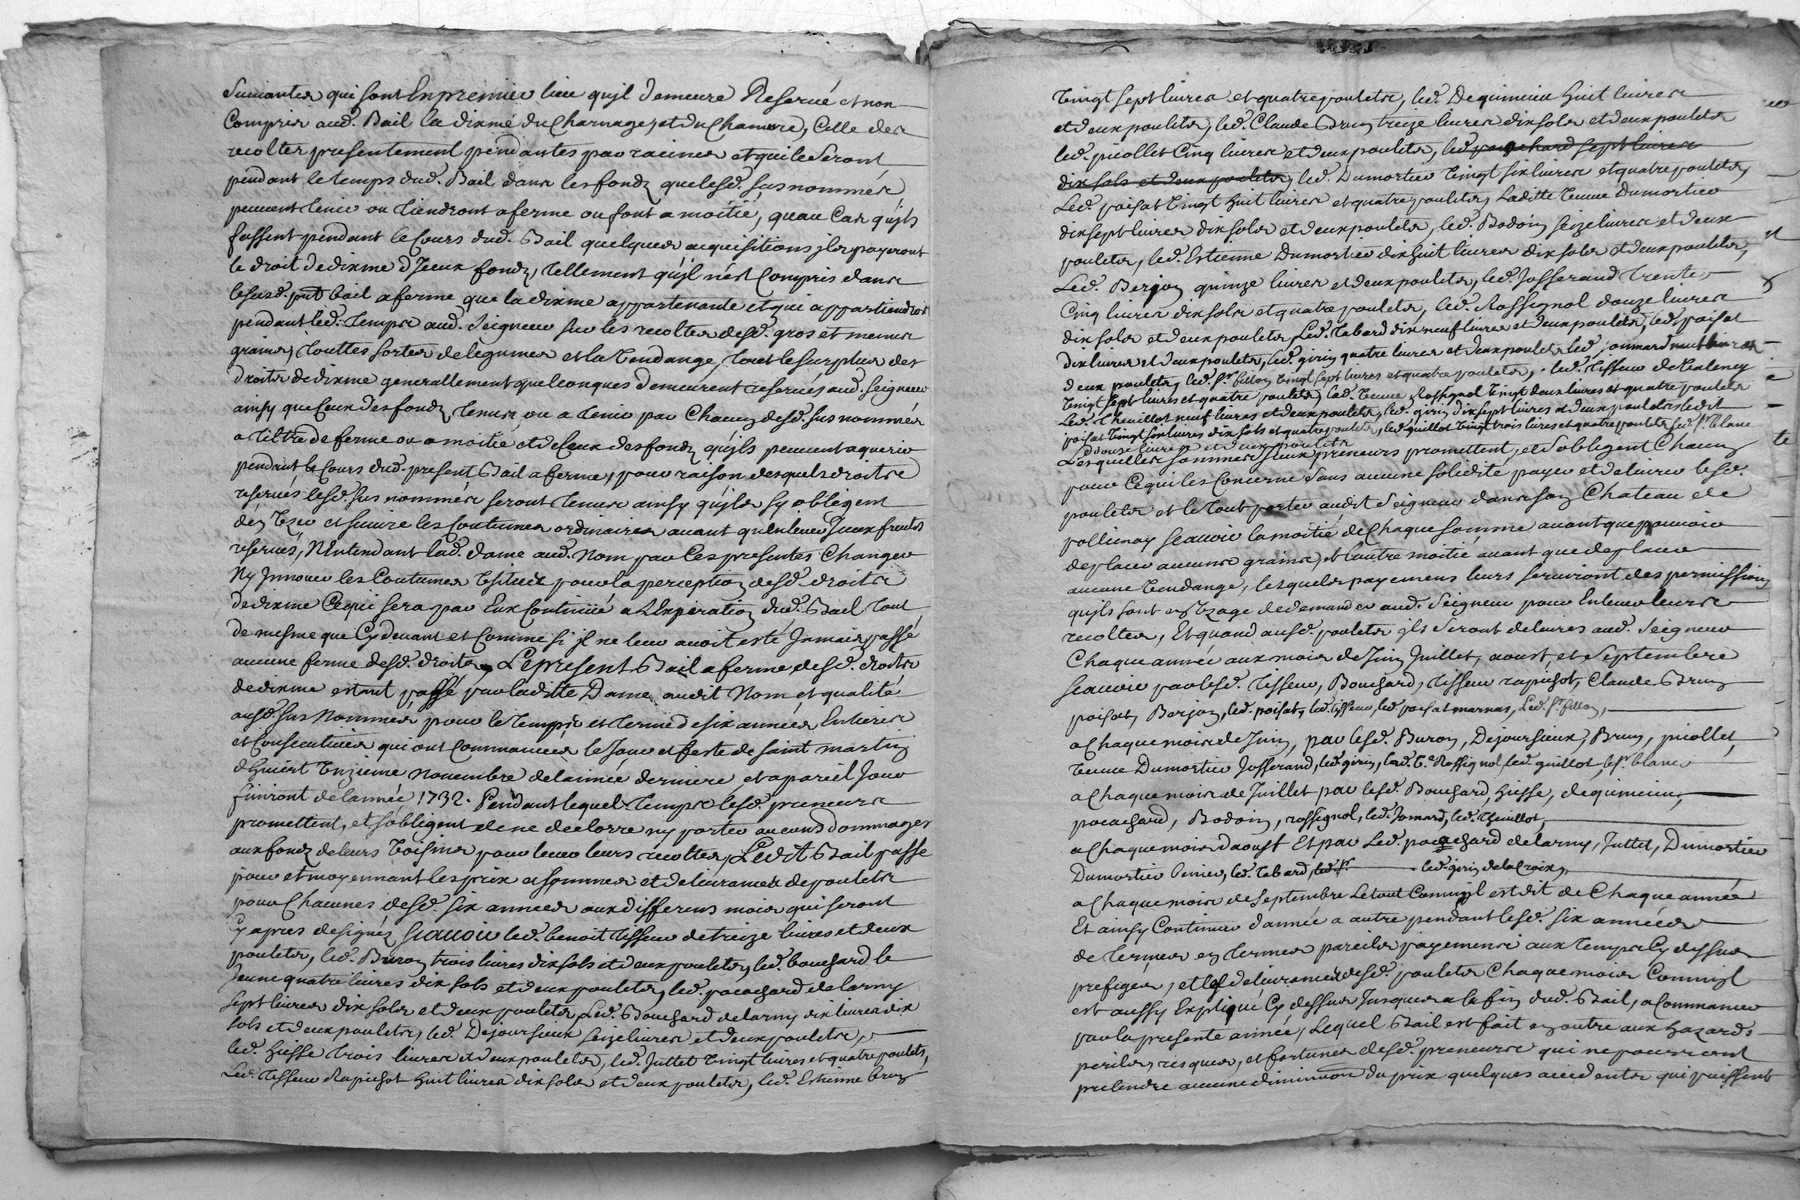 suivantes qui sont En premier lieu qujl demeure Reservé et non
Compris aud. Bail la dixme du Charnage, et du Chanvre, Celle des
recoltes presentement pendantes par racines et qui le seront
pendant le temps dud. Bail dans les fondz que lesd. sus nommés
peuvent tenir ou tiendront a ferme ou font a moitié, quau Cas qujls
fassent pendant le Cours dud. Bail quelques acquisitions jls payeront
le droit de dixme d'Jceux fondz, tellement qujl n'est Compris dans
lesusd. pnt bail a ferme que la dixme appartenante et qui appartiendroit
pendant led. temps aud. Seigneur sur les recoltes desd. gros et menus
grains, touttes sortes de legumes et la vendange, tout le surplus des
droits de dixme generallement quelconques demeurent reservés aud. Seigneur
ainsy que Ceux des fondz tenus, ou a tenir par Chacun desd. sus nommés
a tiltre de ferme ou a moitié et de Ceux des fondz qujls peuvent aquerir
pendant le Cours dud. present Bail a ferme, pour raison desquels droits
reservés lesd. sus nommés seront tenus ainsy qujls sy obligent
d'en Vser et suivre les Coutumes ordinaires avant qu'enlever Jceux fruits
reservés, N'Entendant lad. dame aud. Nom par Ces presentes Changer
Ny Jnnover les Coutumes Vsitées pour la perception desd. droits
de dixme Ce qui sera par Eux Continué a L'Expiration dud. Bail tout
de mesme que Cy devant et Comme si jl ne leur avoit esté Jamais passé
aucune ferme desd. droits, Le present Bail a ferme desd. droits
de dixme estant passé par laditte Dame audit Nom, et qualité
ausd. sus Nommés, pour le temps et terme de six années Entieres
et Consecutives qui ont Commancées le Jour et feste de saint martin
d'hivert Vnzieme novembre de lannée derniere et a pareil Jour
finiront de lannée 1732. Pendant lequel temps lesd. preneurs
promettent, et s'obligent de ne declorre ny porter aucuns dommages
aux fondz de leurs Voisins pour lever leurs recoltes, Ledit Bail passé
pour et moyennant les prix et sommes et delivrances de poulets
pour Chacunes desd. six années aux differens mois qui seront
Cy apres designés Scavoir led. benoit tisseur de treize livres et deux
poulets, led. Buron trois livres dix sols et deux poulets, led. bouchard le
Jeune quatre livres dix sols et deux poulets, led. pacachard de larny
sept livres dix sols et deux poulets, Led. Bouchard de larny dix livres dix
sols et deux poulets, led. Dejoursieux seize livres et deux poulets,
led. Giesse trois livres et deux poulets, led. Juttet Vingt livres et quatre poulets,
Led. tisseur Rapichot huit livres dix sols et deux poulets, led. Estienne bruy
Vingt sept livres et quatre poulets, led. Dequimieu huit livres
et deux poulets, led. Claude Bruy treize livres dix sols et deux poulets
led. picollet Cinq livres et deux poulets, led. pacachard sept livres
dix sols et deux poulets, led. Dumortier Vingt six livres et quatre poulets,
Led. poisat Vingt huit livres et quatre poulets, Laditte Veuve Dumortier
dix sept livres dix sols et deux poulets, led. Bodoin seize livres et deux
poulets, led. Estienne Dumortier dix huit livres dix sols et deux poulets,
Led. Berjon quinze livres et deux poulets, led. Josserand trente
Cinq livres dix sols et quatre poulets, led. Rossignol douze livres
dix sols et deux poulets, Led. tabard dix neuf livres et deux poulets, led. poisat
dix livres et deux poulets, led. girin quatre livres et deux poulets led. jomard
deux poulets, led. Sr. fillon Vingt sept livres et quatre poulets, led. tisseur de
Vingt sept livres et quatre poulets, lad. Veuve Rossignol Vingt deux livres et quatre poulets
Led. theuillot neuf livres et deux poulets, led. girin dix sept livres et deux poulets ledit
poisat Vingt six livres dix sols et quatre poulets, led. guillot Vingt trois livres et quatre poulets led. Sr. blanc
douze livres et deux poulets
Lesquelles sommes Jceux preneurs promettent, et s'obligent Chacun
pour Ce qui les Concerne Sans aucune solidité payer et delivrer lesd.
poulets et le tout porter audit Seigneur dans son Chateau de
pollienay Scavoir la moitié de Chaque somme avant que pouvoir
deplacer aucuns grains, et l'autre moitié avant que deplacer
aucune Vendange, lesquels payemens leurs serviront des permissions
qujls sont en Vzage de demander aud. Seigneur pour Enlever leurs
recoltes, Et quand ausd. poulets jls seront delivrés aud. Seigneur
Chaque année aux mois de Juin Juillet, aoust, et Septembre
Scavoir par lesd. tisseur, Bouchard, tisseur rapichot, Claude Bruy
poisat, Berjon, led. poisat, led. tisseur, led. poisat marnas, Led. Sr. fillon,
a Chaque mois de Juin, par lesd. Buron, Dejoursieux, Bruy, picollet,
Veuve Dumortier Josserand, led. girin, lad. Ve. Rossignol, led. guillot, le Sr. blanc
a Chaque mois de Juillet par lesd. Bouchard, Giesse, dequimieu,
pacachard, Bodoin, rossignol, led. Jomard, led. theuillot,
a Chaque mois daoust Et par Led. pacachard de larny, Juttet, Dumortier
Dumortier Penin, led. tabard, led. Sr. led. girin de la Croix,
a Chaque mois de Septembre Le tout Comme jl est dit de Chaque année
Et ainsy Continuer d'année a autre pendant lesd. six années
de termes en termes pareils payemens aux temps Cy dessus
prefigés, et les delivrances desd. poulets Chaque mois Comme jl
est aussy Expliqué Cy dessus Jusques a la fin dud. Bail, a Commancer
par la presente année, Lequel Bail est fait en outre aux hazards,
perils, risques, et fortunes desd. preneurs qui ne pourront
pretendre aucune diminution du prix quelques accidents qui puissent